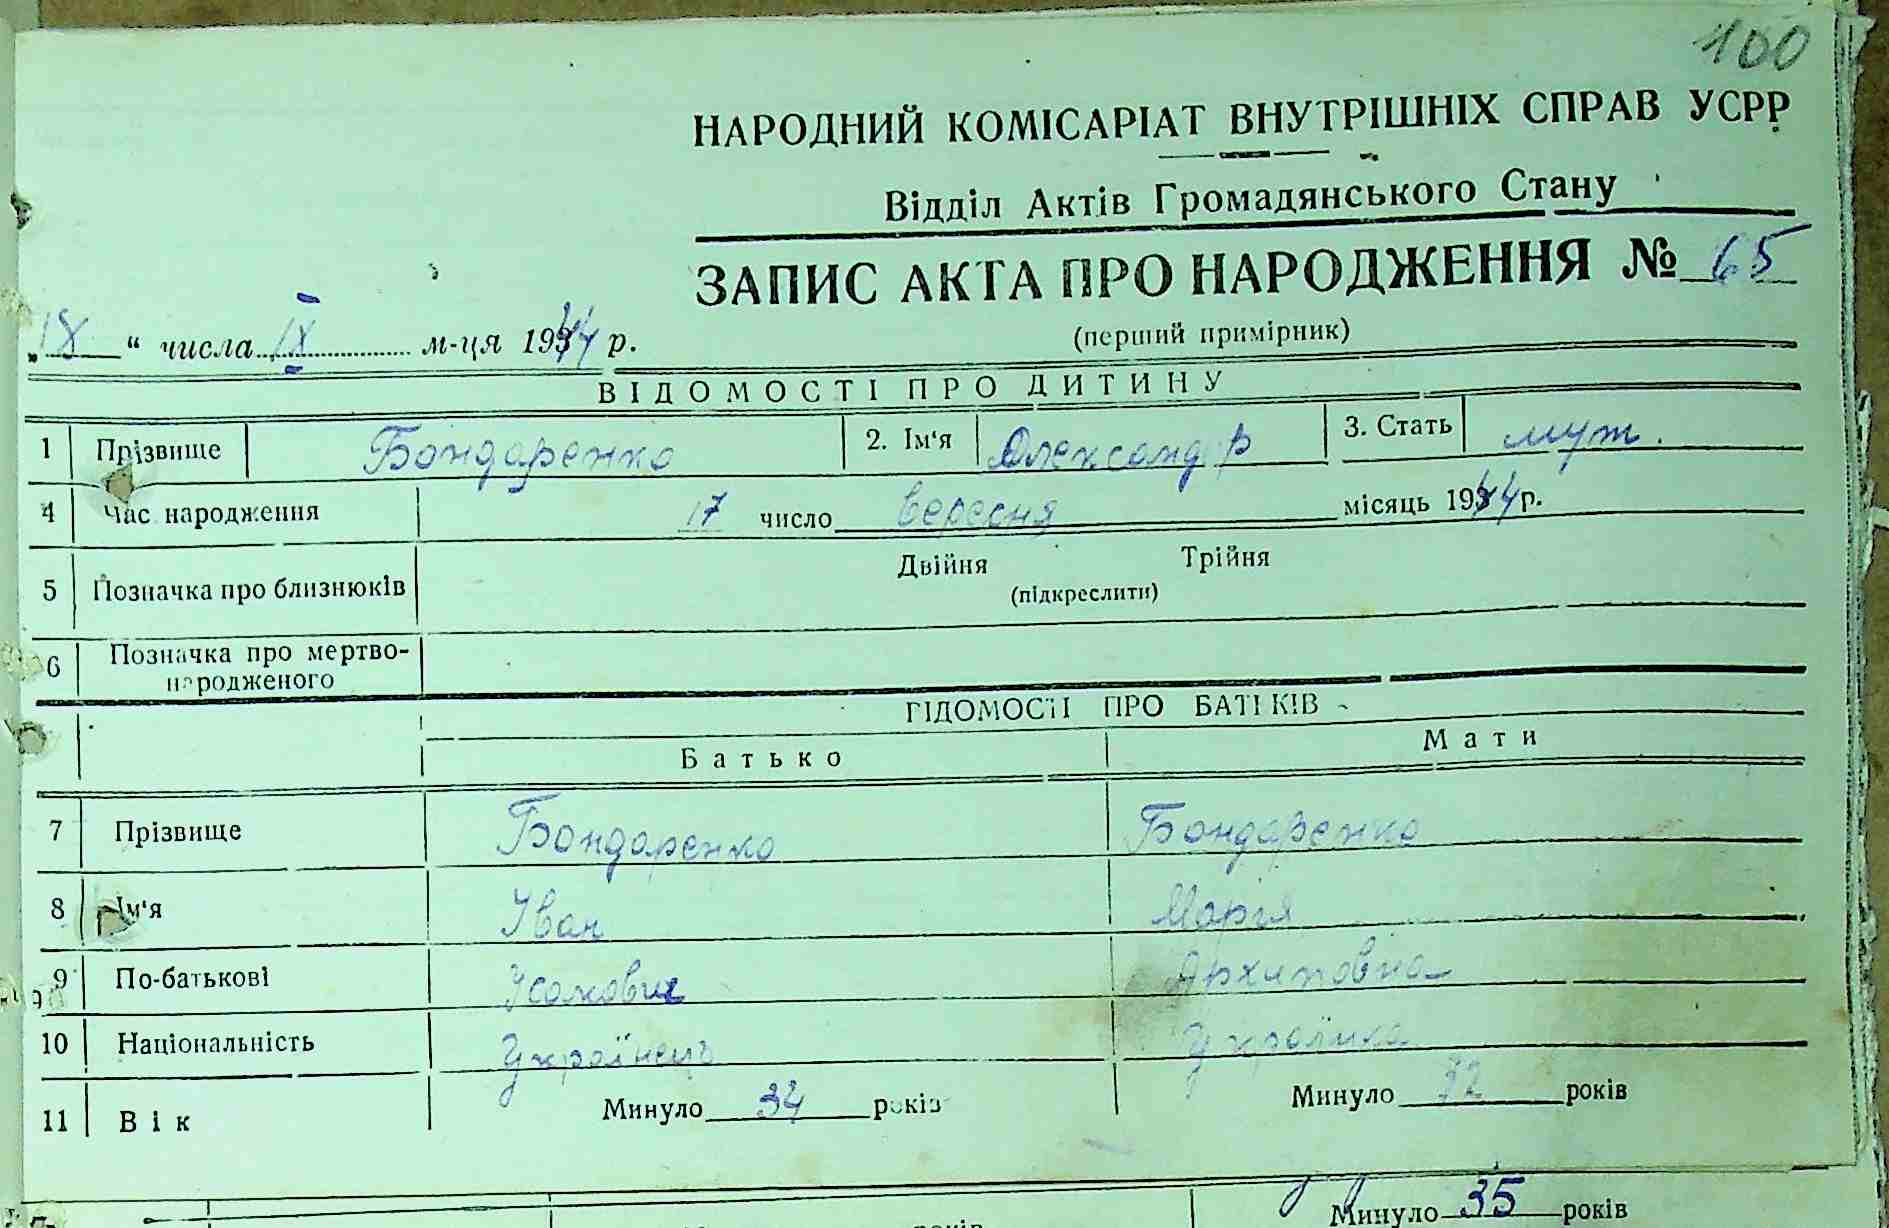 100
НАРОДНИЙ КОМІСАРІАТ ВНУТРІШНІХ СПРАВ УСРР
Відділ Актів Громадянського Стану
ЗАПИС АКТА ПРО НАРОДЖЕННЯ № 65
(перший примірник)
„18“ числа IX м-ця 1944 р.
ВІДОМОСТІ ПРО ДИТИНУ
1 Прізвище Бондаренко 2. Ім‘я Олександр 3. Стать муж.
4 Час народження 17 число вересня місяць 1944 р.
5 Позначка про близнюків Двійня Трійня
(підкреслити)
6 Позначка про мертво-
народженого
ВІДОМОСТІ ПРО БАТЬКІВ
Батько Мати
7 Прізвище Бондаренко Бондаренко
8 Ім‘я Іван Марія
9 По-батькові Архиповна
10 Національність Українець Українка
11 Вік Минуло 34 років Минуло 32 років
Минуло 35 років